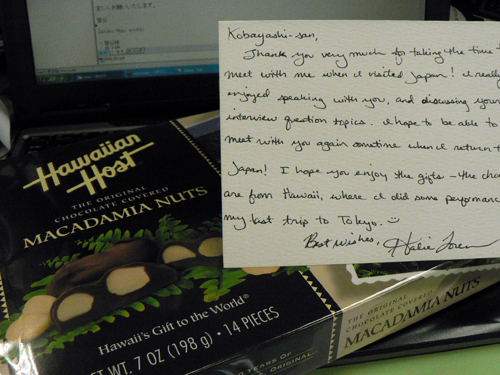 Kobayashi-san,
Thank you very much for taking the time
meet with me when I visited Japan! I really
enjoyed speaking with you, and discussing your
interview question topics. I hope to be able to
meet with you again sometime when I return t
Japan! I hope you enjoy the gifts - the cho
are from Hawaii, where I did some performanc
my last trip to Tokyo. :)
Best wishes, Halie Loren
Hawaiian
Host
THE ORIGINAL
CHOCOLATE COVERED
MACADAMIA NUTS
Hawaii's Gift to the World®
NET WT. 7 OZ (198 g) • 14 PIECES
THE ORIGINAL
CHOCOLATE COVERED
MACADAMIA NUTS
YEARS OF
ORIGINAL